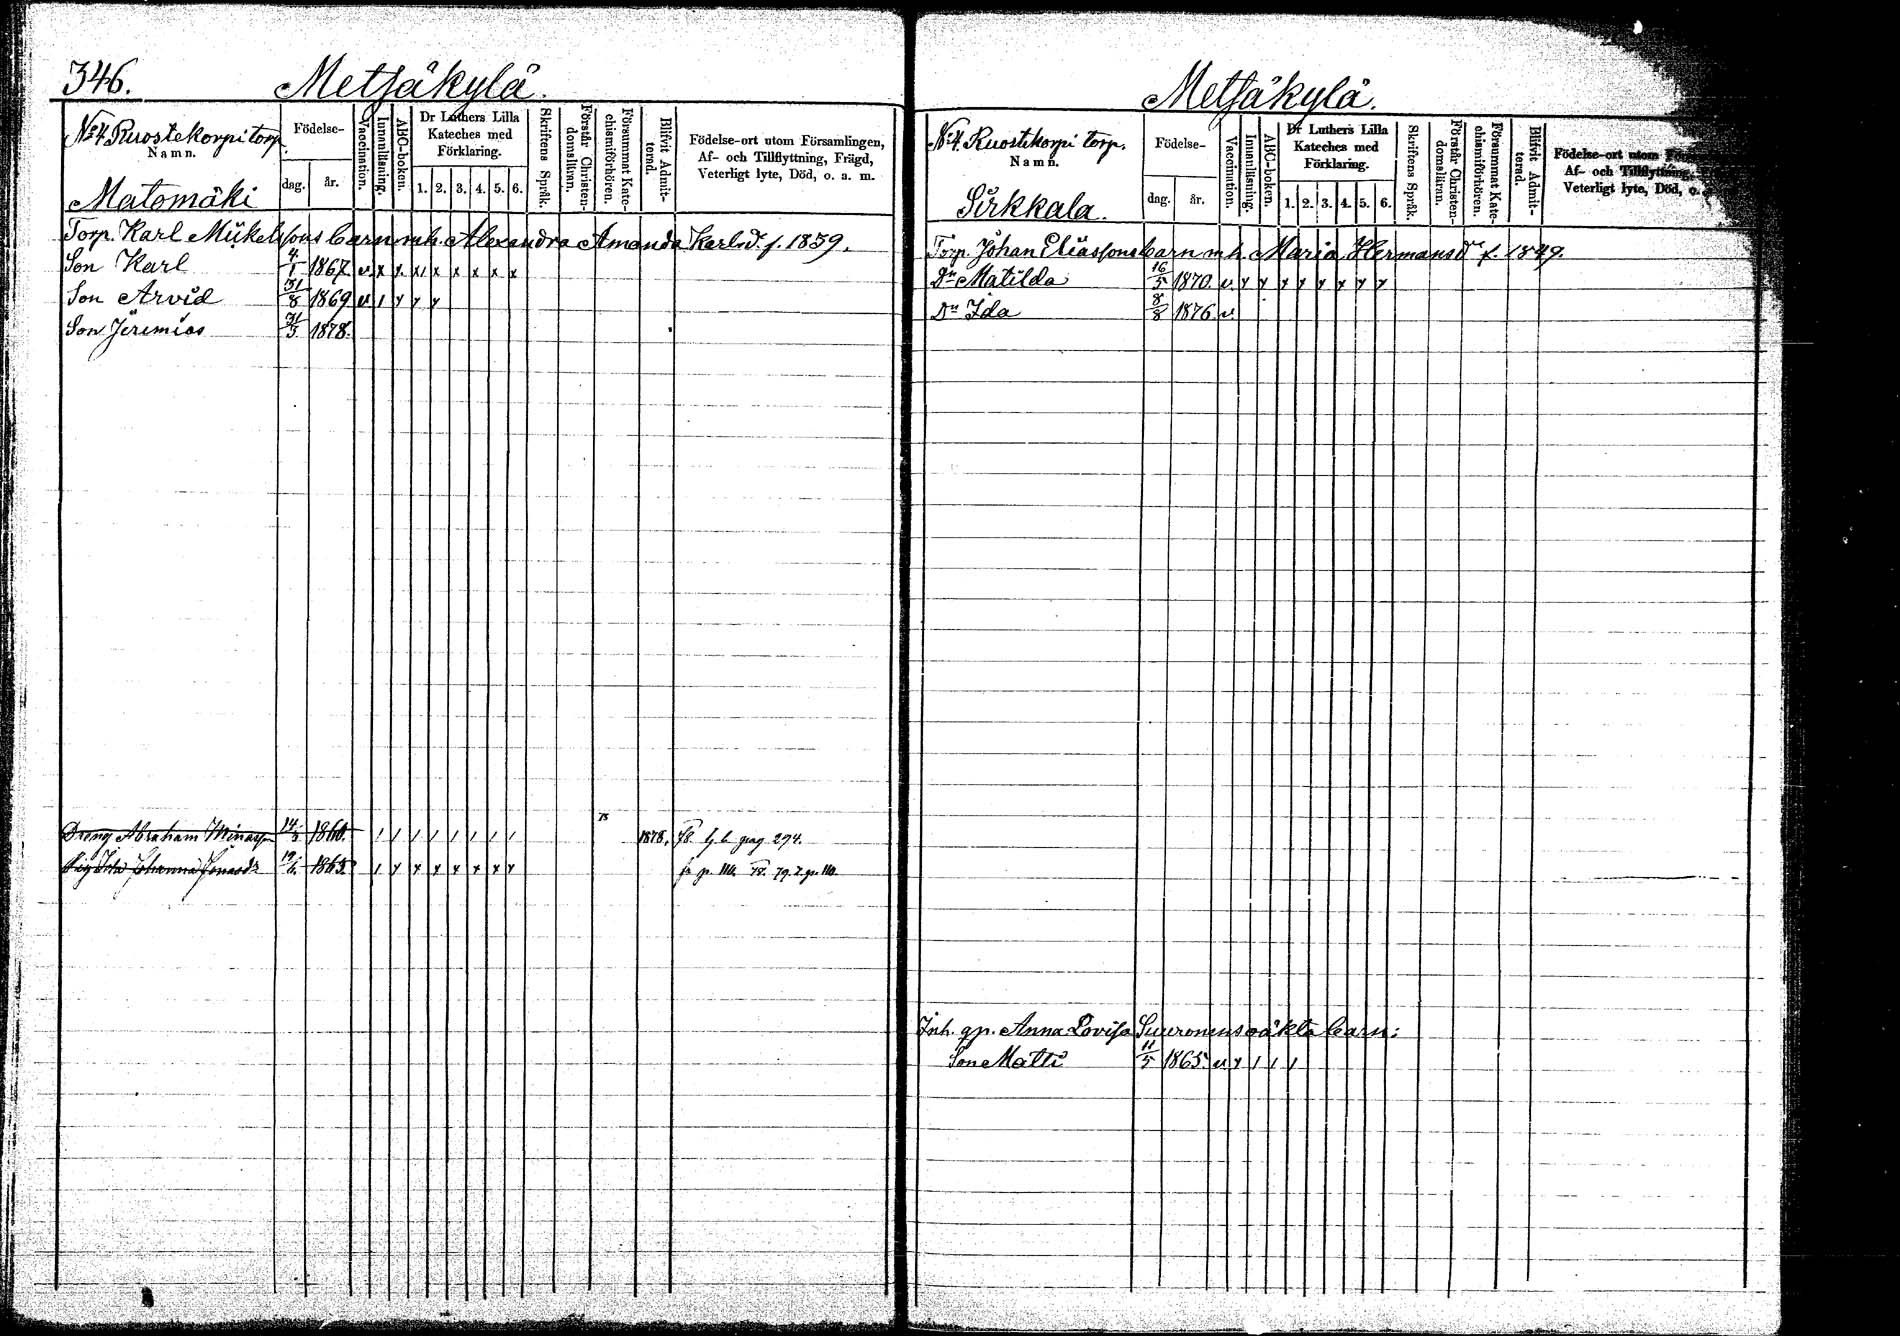 346.
Metsäkylä.
No 4. Ruostekorpi torp.
Namn.
Födelse-
dag.
år.
Vaccination.
Innanläsning.
ABC-boken.
Dr Luthers Lilla
Kateches med
Förklaring.
1. 2. 3. 4. 5. 6.
Skriftens Språk.
Förstår Christen-
domsläran.
Försummat Kate-
chismiförhören.
Blifvit Admit-
terad.
Födelse-ort utom Församlingen,
Af- och Tillflyttning, Frägd,
Veterligt lyte, Död, o. a. m.
Matomäki
Torp. Karl Mickelssons barn m h. Alexandra Amanda Karlsdr. f. 1859.
Son Karl 4/1 1867. v. x x x x x x x x
Son Arvid 31/8 1869 v 1 x x x
Son Jeremias 31/5. 1878.
Dreng Abraham 14/3 1860. 1 1 1 1 1 1 1 1 78 1878. 78. pag 294.
Pig Ida Johanna Jonasdr 19/6. 1865. 1 x x x x x x x fr p. 110. 78. 79. t. p. 110.
Metsäkylä.
No 4. Ruostekorpi torp.
Namn.
Födelse-
dag.
år.
Vaccination.
Innanläsning.
ABC-boken.
Dr Luthers Lilla
Kateches med
Förklaring.
1. 2. 3. 4. 5. 6.
Skriftens Språk.
Förstår Christen-
domsläran.
Försummat Kate-
chismiförhören.
Blifvit Admit-
terad.
Födelse-ort utom
Af- och Tillflyttning,
Veterligt lyte, Död, o.
Sirkkala.
Torp. Johan Eliassons barn m h. Maria Hermansdr f. 1849.
Dr Matilda 16/5 1870. v x x x x x x x x
Dr Ida 8/8 1876. v.
Inh. qp. Anna Lovisa Suuronens oäkta barn:
Son Matti 11/5 1865. v x 1 1 1